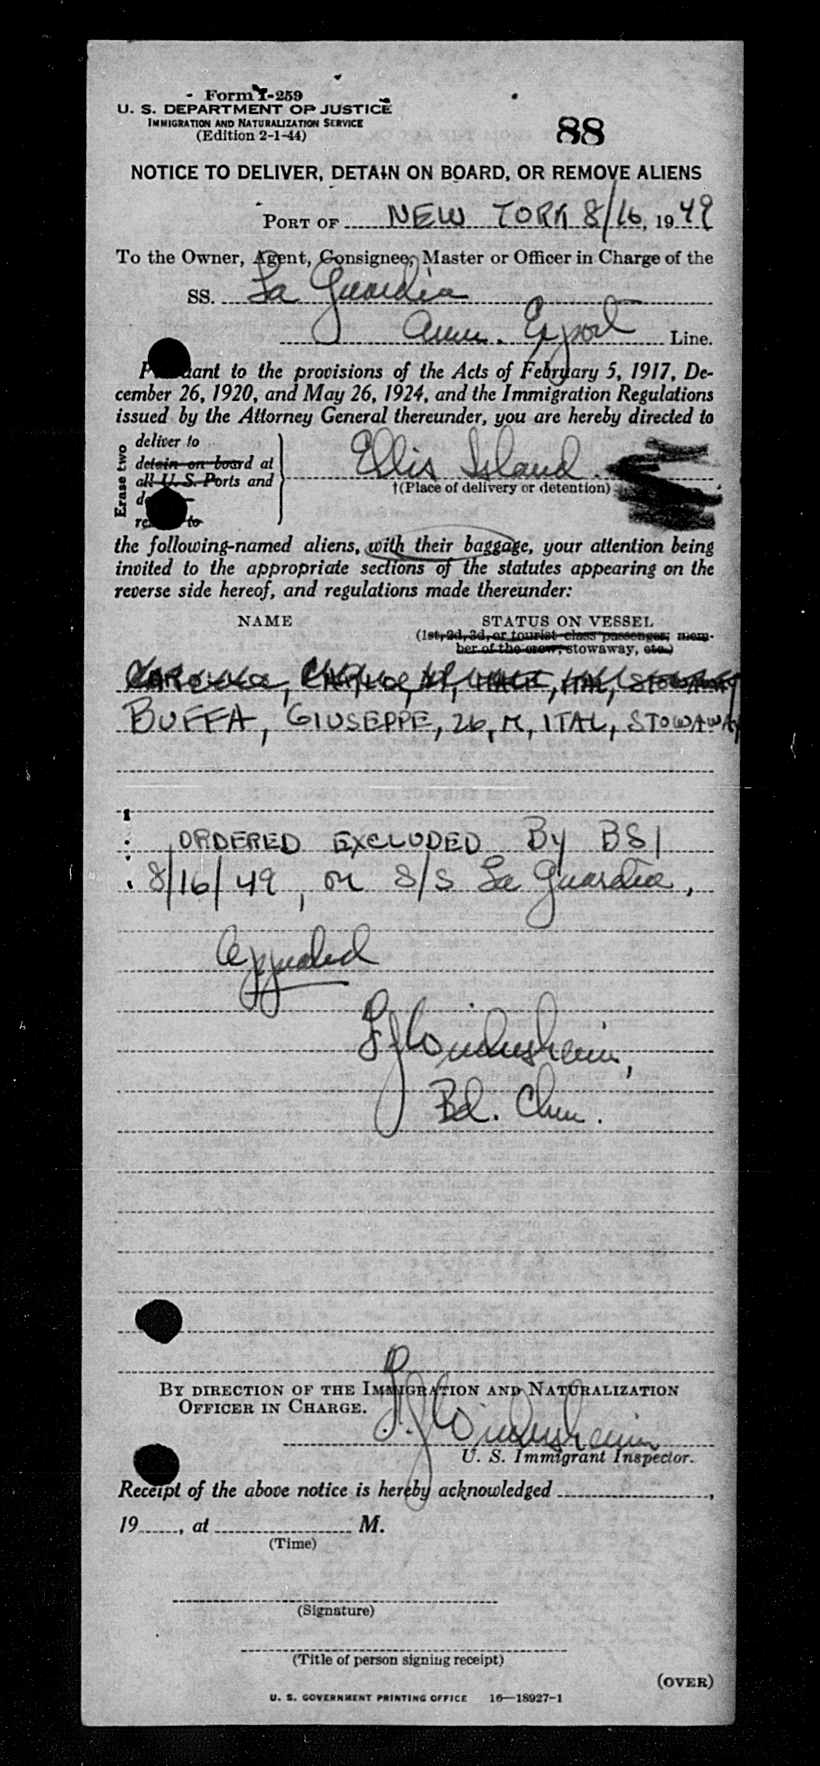 Form I-259
U. S. DEPARTMENT OF JUSTICE
IMMIGRATION AND NATURALIZATION SERVICE
(Edition 2-1-44)
88
NOTICE TO DELIVER, DETAIN ON BOARD, OR REMOVE ALIENS
PORT OF NEW YORK 8/16, 1949
To the Owner, Agent, Consignee, Master or Officer in Charge of the
SS. La Guardia
Am. Export Line.
to the provisions of the Acts of February 5, 1917, De-
cember 26, 1920, and May 26, 1924, and the Immigration Regulations
issued by the Attorney General thereunder, you are hereby directed to
Erase two
deliver to
detain on board at
all U. S. Ports and
to
Ellis Island.
†(Place of delivery or detention)
the following-named aliens, with their baggage, your attention being
invited to the appropriate sections of the statutes appearing on the
reverse side hereof, and regulations made thereunder:
NAME STATUS ON VESSEL
(1st, 2d, 3d, or tourist class passenger, mem-
ber of the crew, stowaway, etc.)
BUFFA, GIUSEPPE, 26, M, ITAL, STOWAWAY
ORDERED EXCLUDED By BSI
8/16/49, on S/S La Guardia,
Appealed
Bd. Chm.
BY DIRECTION OF THE IMMIGRATION AND NATURALIZATION
OFFICER IN CHARGE.
U. S. Immigrant Inspector.
Receipt of the above notice is hereby acknowledged ,
19 , at M.
(Time)
(Signature)
(Title of person signing receipt)
(OVER)
U. S. GOVERNMENT PRINTING OFFICE 16—18927-1